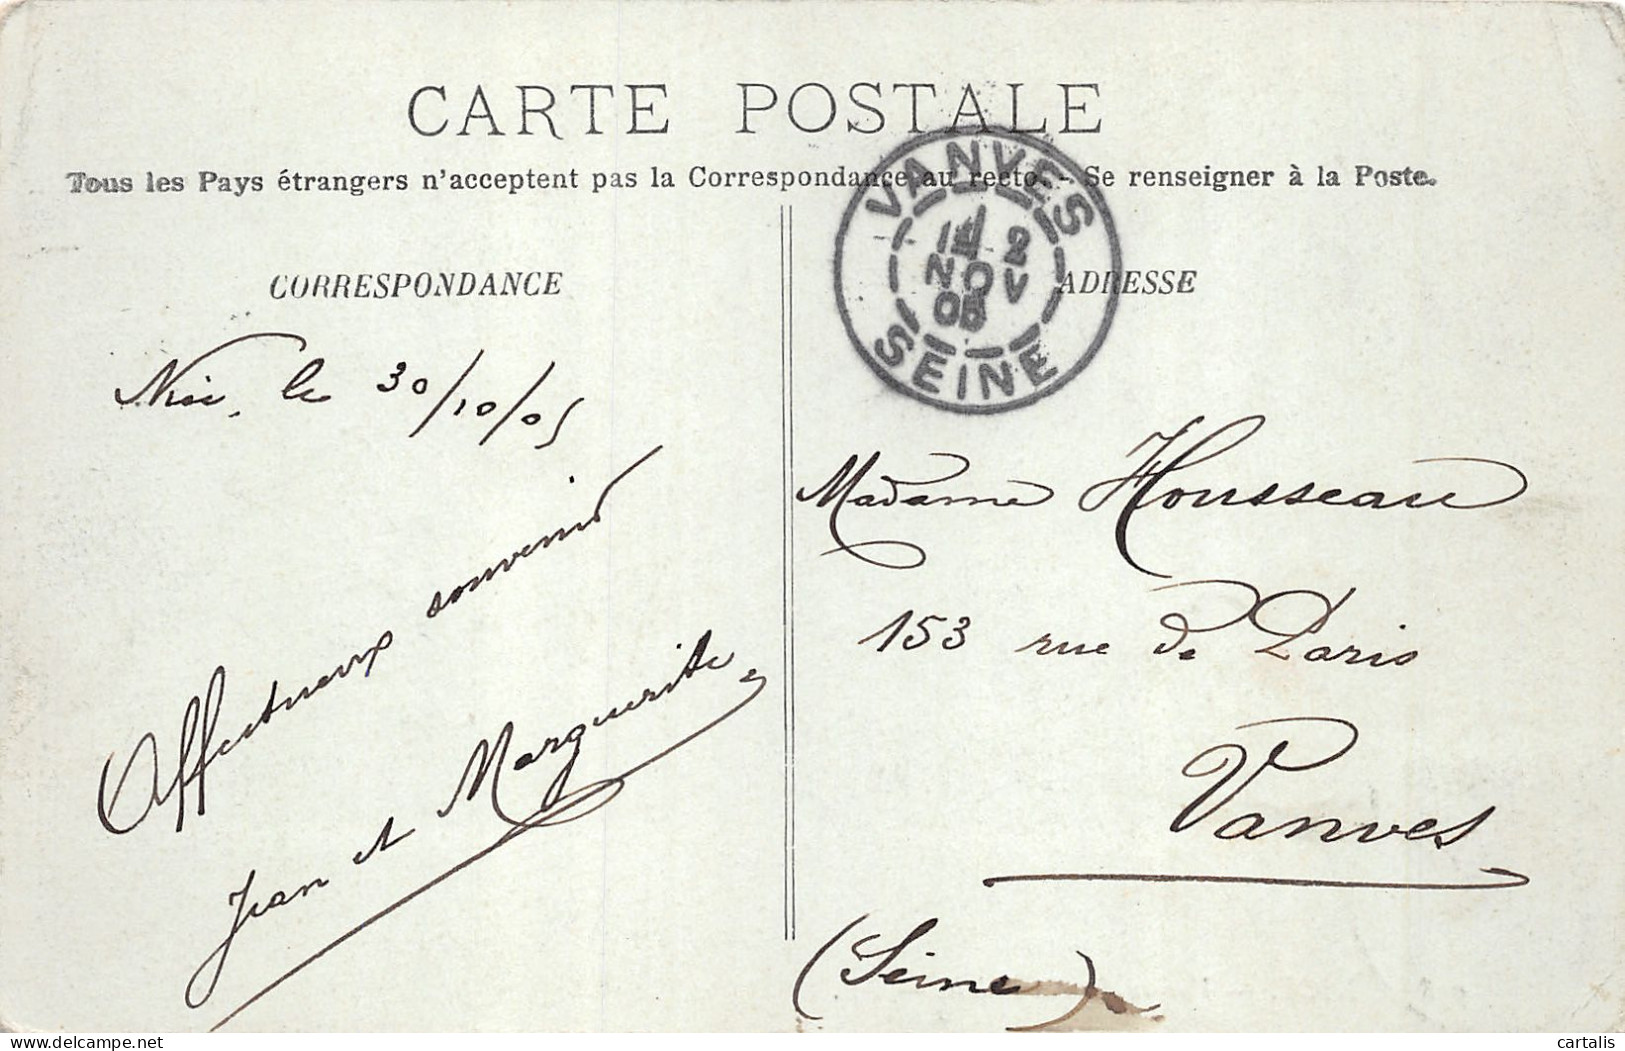 CARTE POSTALE
Tous les Pays étrangers n'acceptent pas la Correspondance au recto. - Se renseigner à la Poste.
VANVES
2
NOV
05
SEINE
CORRESPONDANCE
Nice, le 30/10/05
Affectueux souvenir
Jean et Marguerite
ADRESSE
Madame Housseau
153 rue de Paris
Vanves
(Seine)
delcampe.net
cartalis